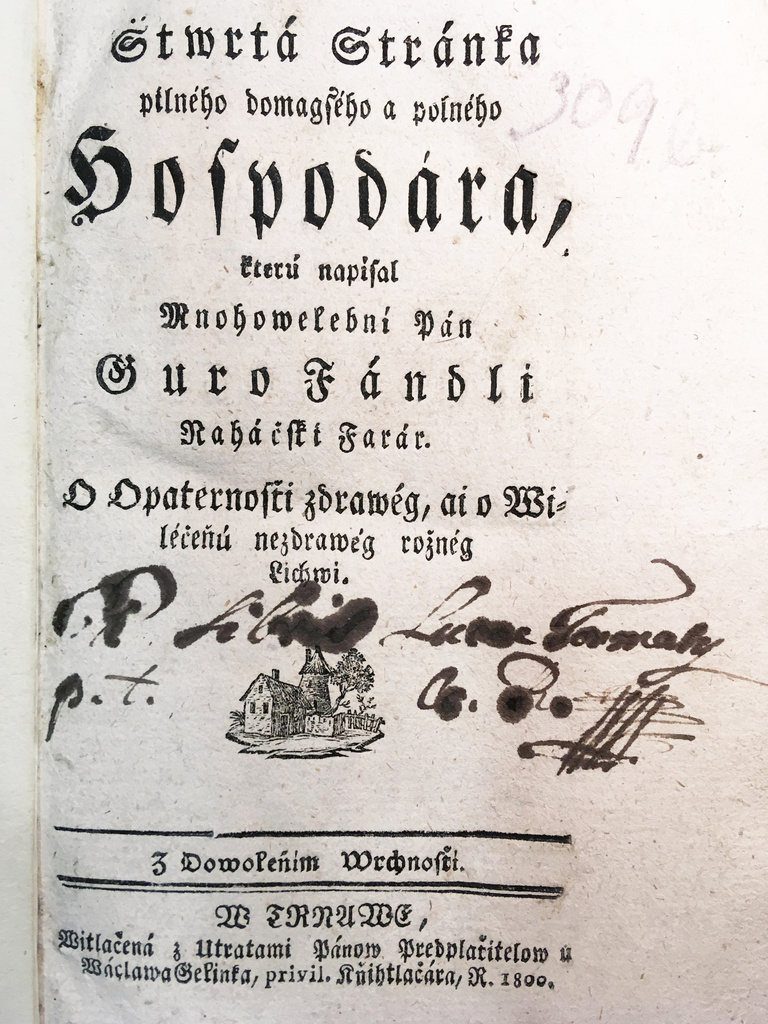 Štwrtá Stránka
pilného domagſého a polného
Hoſpodára,
kterú napiſal
Mnohowelební Pán
Guro Fándli
Naháčſki Farár.
O Opaternoſťi zdrawég, ai o Wi-
léčeňú nezdrawég rožnég
Lichwi.
Ex Libris Lucae Tormaly
p.t.
309
Z Dowoleňim Wrchnoſťi.
W TRNAWE,
Witlačená z Utratami Pánow Predplaťitelow u
Wáclawa Gelinka, privil. Kňihtlačára, R. 1800.